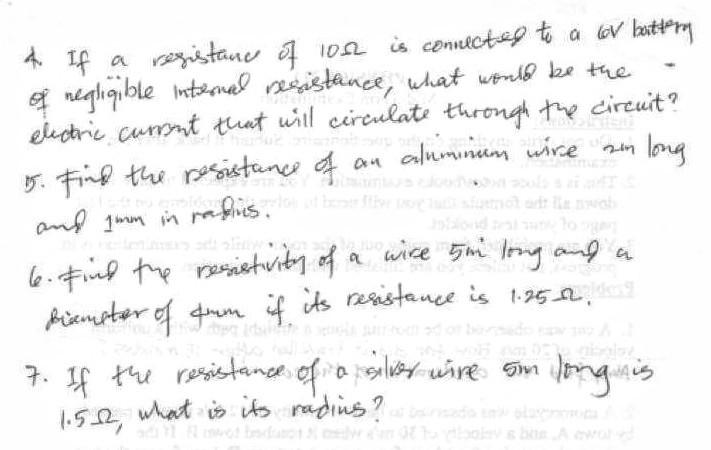 4. If a resistance of 10Ω is connected to a 6V battery
of negligible internal resistance, what would be the
electric current that will circulate through the circuit?
5. Find the resistance of an aluminium wire 2m long
and 1mm in radius.
6. Find the resistivity of a wire 5m long and a
Diameter of 4mm if its resistance is 1.25 Ω.
7. If the resistance of a silver wire 5m long is
1.5 Ω, what is its radius?